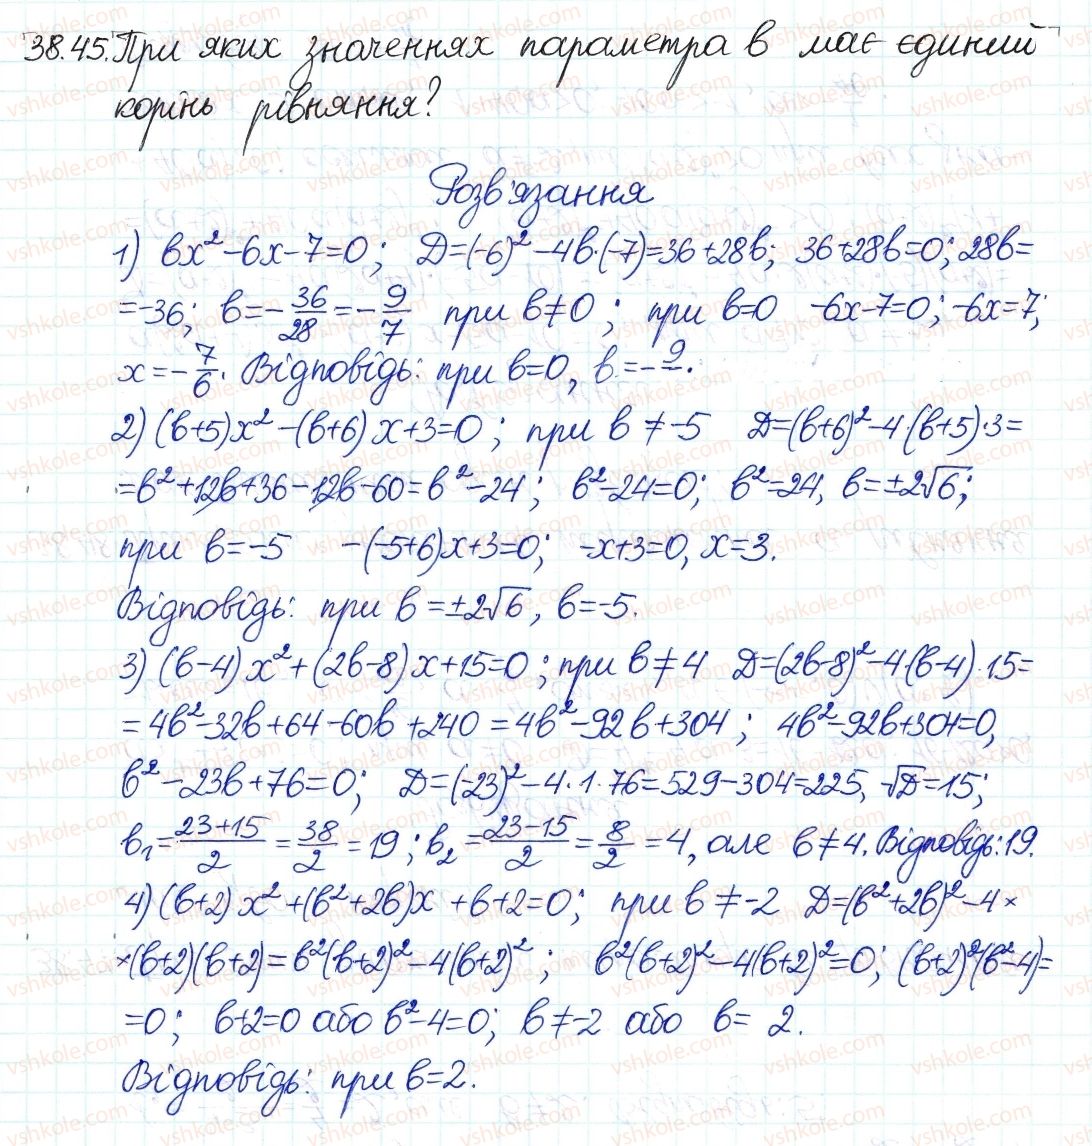 38.45. При яких значеннях параметра b має єдиний
корінь рівняння?
Розв'язання
1) bx² - 6x - 7 = 0; D = (-6)² - 4b·(-7) = 36 + 28b; 36 + 28b = 0; 28b =
= -36; b = -36/28 = -9/7 при b ≠ 0; при b = 0 -6x - 7 = 0; -6x = 7;
x = -7/6. Відповідь: при b = 0, b = -9/.
2) (b+5)x² - (b+6)x + 3 = 0; при b ≠ -5 D = (b+6)² - 4·(b+5)·3 =
= b² + 12b + 36 - 12b - 60 = b² - 24; b² - 24 = 0; b² = 24, b = ±2√6;
при b = -5 -(-5+6)x + 3 = 0; -x + 3 = 0, x = 3.
Відповідь: при b = ±2√6, b = -5.
3) (b-4)x² + (2b-8)x + 15 = 0; при b ≠ 4 D = (2b-8)² - 4·(b-4)·15 =
= 4b² - 32b + 64 - 60b + 240 = 4b² - 92b + 304; 4b² - 92b + 304 = 0,
b² - 23b + 76 = 0; D = (-23)² - 4·1·76 = 529 - 304 = 225, √D = 15;
b₁ = (23+15)/2 = 38/2 = 19; b₂ = (23-15)/2 = 8/2 = 4, але b ≠ 4. Відповідь: 19.
4) (b+2)x² + (b²+2b)x + b + 2 = 0; при b ≠ -2 D = (b²+2b)² - 4×
×(b+2)(b+2) = b²(b+2)² - 4(b+2)²; b²(b+2)² - 4(b+2)² = 0; (b+2)²(b²-4) =
= 0; b+2 = 0 або b² - 4 = 0; b ≠ -2 або b = 2.
Відповідь: при b = 2.
vshkole.com